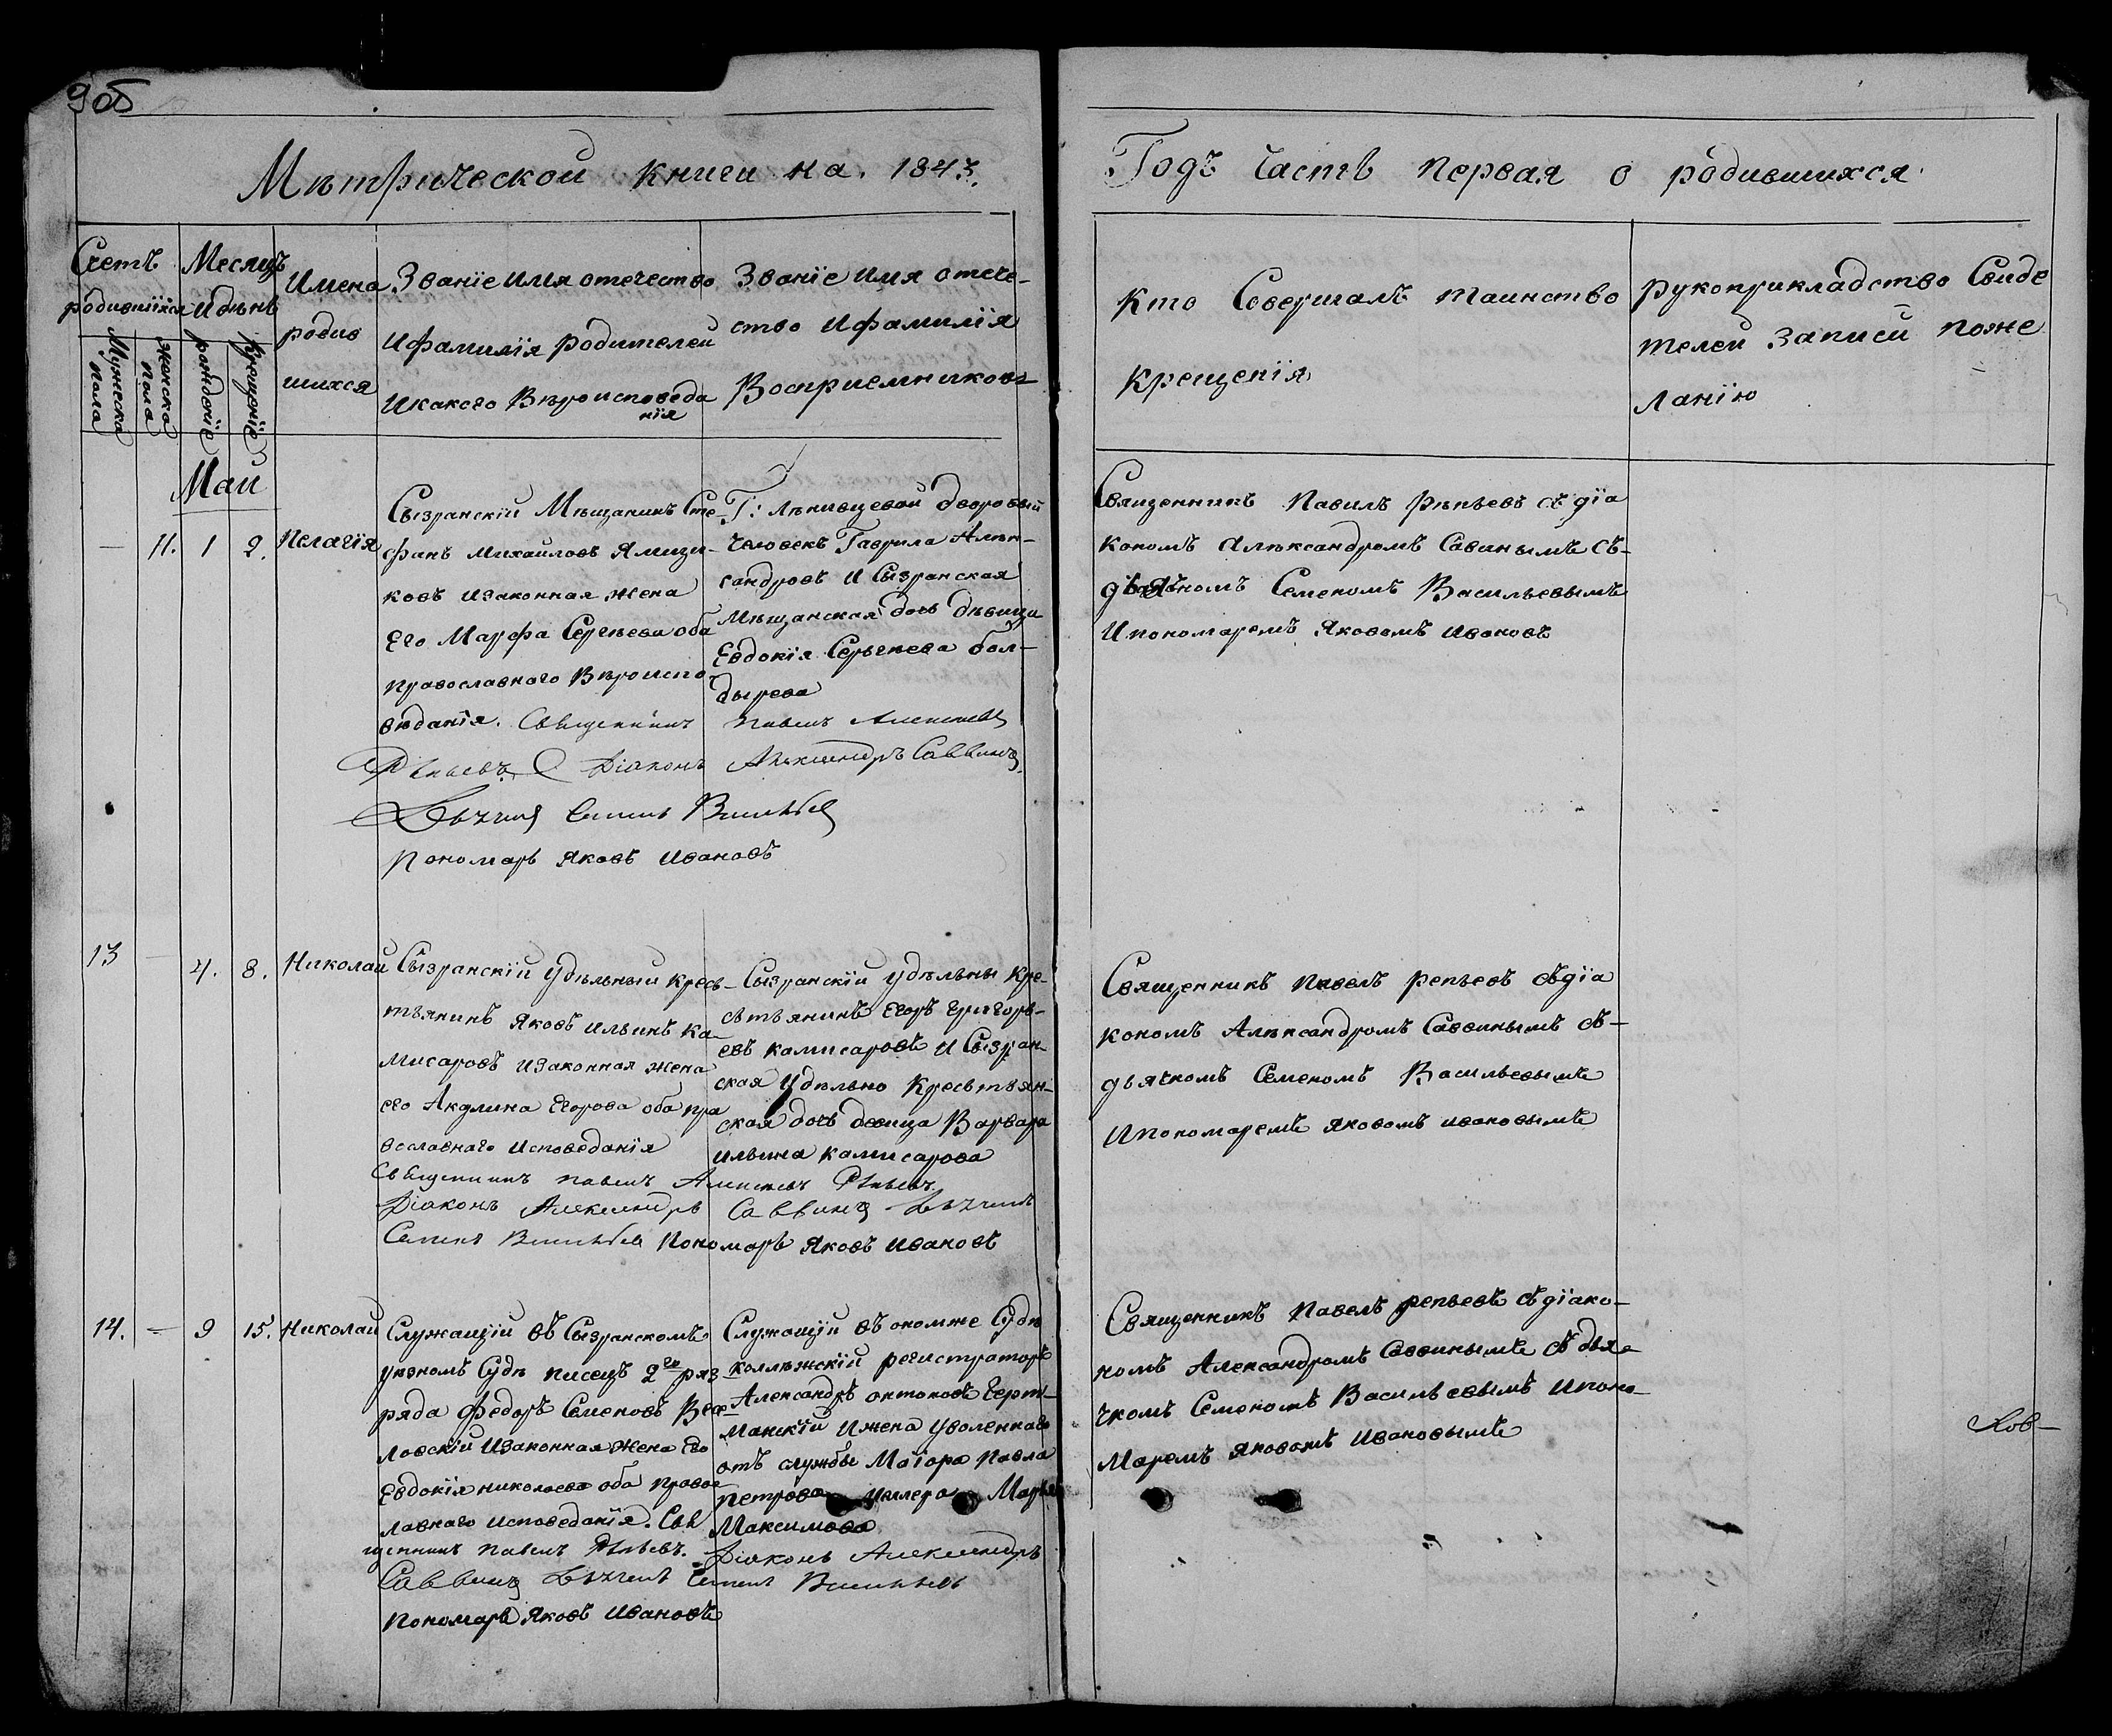 9об
Мѣтрической книги на. 1843.
Годъ часть первая о родившихся.
Счетъ
родившїихся
Мужеска
пола
Женска
пола
Месяцъ
и день
рождєнїе
Крещенїе
Имена
родив
шихся
Званїе имя отечество
и фамилїя родителей
и какого Вѣроисповеда
нїя
Званїе имя отече-
ство и фамилїя
Восприемниковъ
Кто Совершалъ таинство
Крещенїя
рукоприкладство Свиде
телей записи поже
ланїю
Маи
— 11. 1 2. Пелагїя
Сызранскїй Мѣщанинъ Сте-
фанъ Михайловъ Ямщи-
ковъ и законная жена
Его Марфа Сергѣева оба
православного Вѣроиспо-
вѣданїя. Священникъ Павелъ Алексѣевъ
Рѣпьевъ Дїаконъ Александръ Саввинъ
Дьячекъ Семенъ Васильевъ
Пономарь Яковъ Ивановъ
Г: Лѣнивцевой дворовый
человекъ Гаврила Алек-
сандровъ и Сызранская
Мѣщанская дочь дѣвица
Евдокїя Серьгѣева бол-
дырева
Священникъ Павилъ Рѣпьевъ съ дїа
кономъ Алѣксандромъ Савинымъ съ-
дьячкомъ Семеномъ Васильевымъ
И пономаремъ Яковомъ Ивановъ
13 — 4. 8. Николай
Сызранскїй Удѣльный кресь-
тьянинъ Яковъ Ильинъ Ка-
мисаровъ и законная жена
его Акулина Егорова оба пра
вославнаго исповеданїя
Священникъ Павелъ Алексѣевъ Рѣпьевъ.
Дїаконъ Александръ Саввинъ Дьячекъ
Семенъ Васильевъ Пономарь Яковъ Ивановъ
Сызранскїй удѣльны кре-
сьтьянинъ Егоръ Григорь-
евъ камисаровъ и Сызран-
ская Удѣльно Кресьтьян-
ская дочь девица Варвара
ильина камисарова
Священникъ Павелъ репьевъ съ дїа
кономъ Алѣксандромъ Саввинымъ съ-
дьячкомъ Семеномъ Васильевымъ
И пономаремъ Яковомъ ивановымъ
14. — 9 15. Николай
Служащїй въ Сызранскомъ
уѣзномъ Судѣ писецъ 2го раз-
ряда Федоръ Семеновъ
ловскїй и законная жена его
Евдокїя николаева оба право
лавнаго исповеданїя. Свя
щенникъ Павелъ Рѣпьевъ. Дїаконъ Александръ
Саввинъ Дьячекъ Семенъ Васильевъ
Пономарь Яковъ Ивановъ
Служащїй въ ономже Судѣ
коллѣжскїй регистраторъ
Александръ антоновъ
манскїй и жена уволеннаго
отъ службы Маїора Павла
Петрова Миллера Марья
Максимова
Священникъ Павелъ репьевъ съ дїако-
номъ Александромъ Саввинымъ съ дья-
чкомъ Семеномъ Васильевымъ и поно-
маремъ Яковомъ Ивановымъ